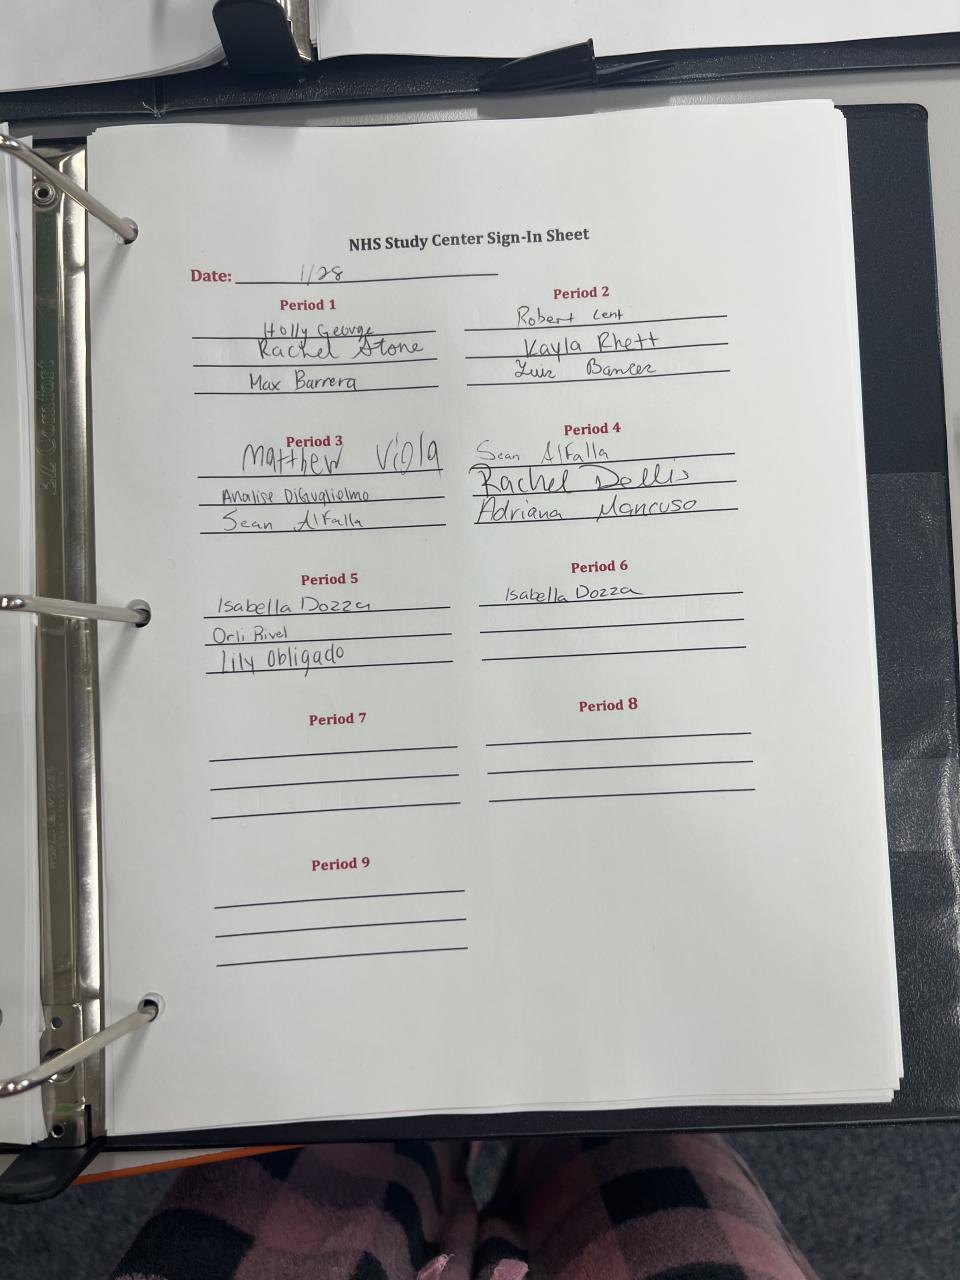 NHS Study Center Sign-In Sheet
Date: 1/28
Period 1
Holly George
Rachel Stone
Max Barrera
Period 2
Robert Lent
Kayla Rhett
Luis
Period 3
Matthew Viola
Analise DiGuglielmo
Sean Alfalla
Period 4
Sean Alfalla
Rachel Dellis
Adriana Mancuso
Period 5
Isabella Dozza
Orli Rivel
Lily Obligado
Period 6
Isabella Dozza
Period 7
Period 8
Period 9